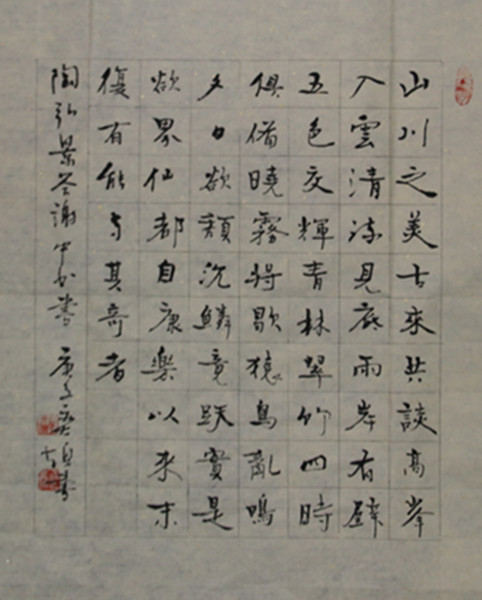 山川之美古來共談高峯
入雲清流見底兩岸石壁
五色交輝青林翠竹四時
俱備曉霧將歇猿鳥亂鳴
夕日欲頹沉鱗竟跃實是
欲界仙都自康樂以來未
復有能与其奇者
陶弘景答謝中书書 庚子